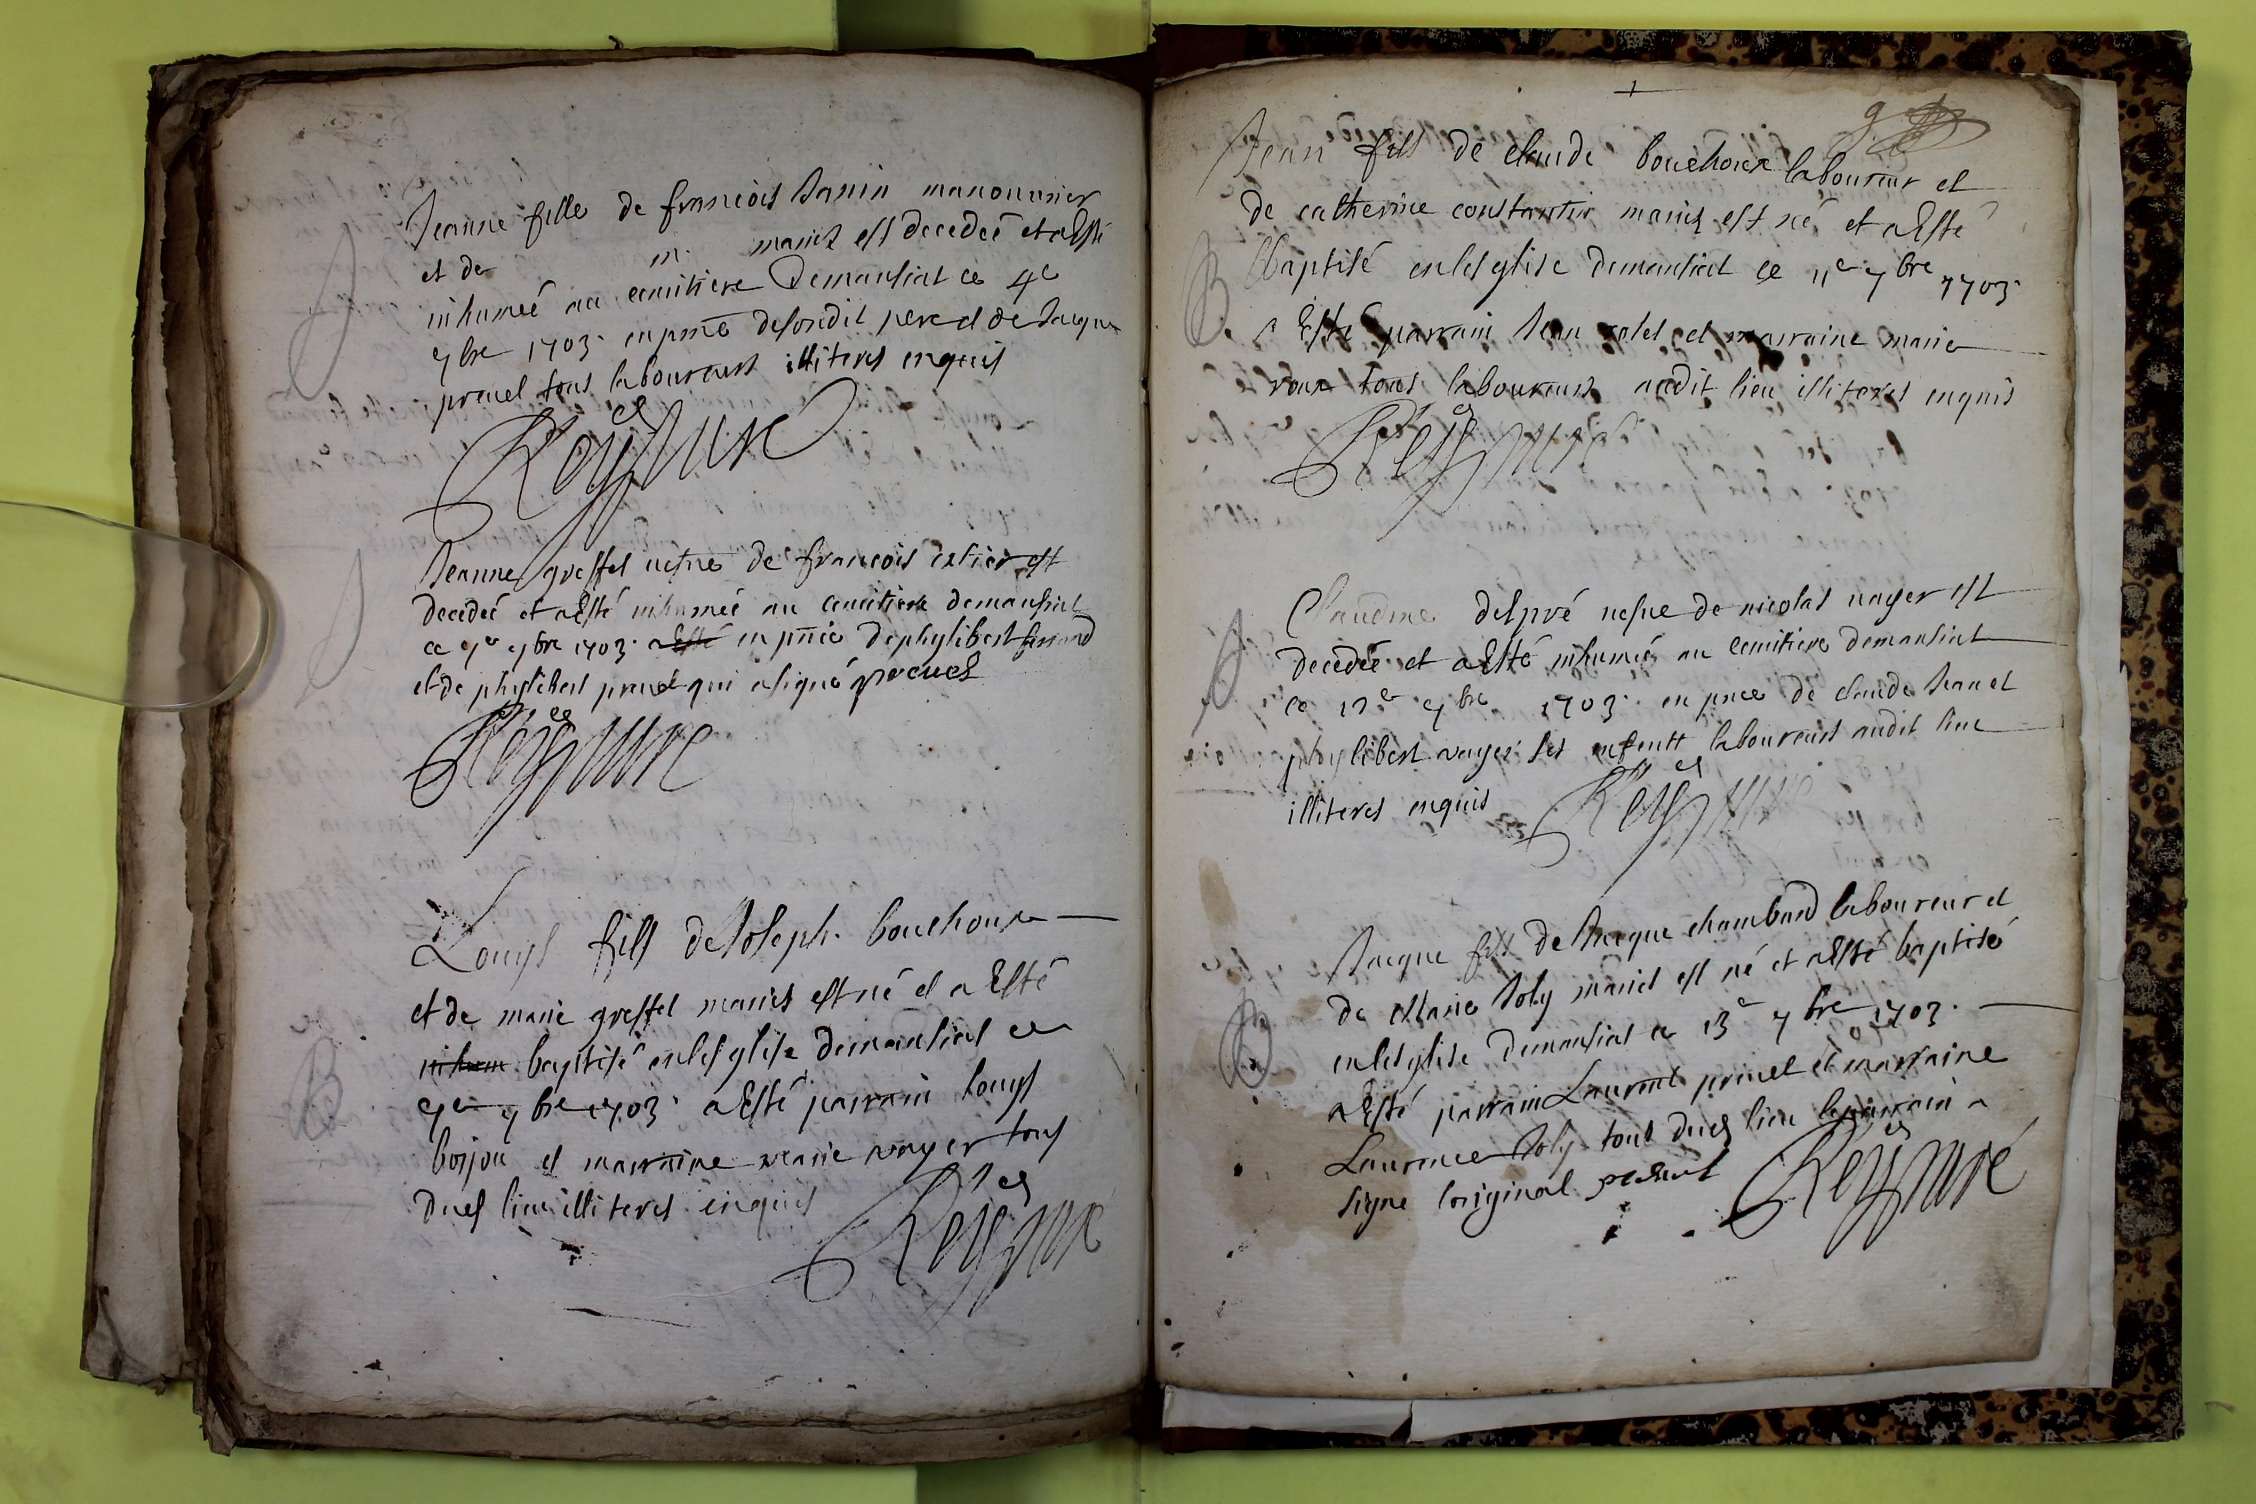 Jeanne fille de francois Janin manouurier
et de m. mariez est decedeé et a Esté
inhumeé au cemitiere Demansiat ce 4e
7bre 1703. en pnce desondit pere et de Jacque
preuel tous laboureurs illiteres enquis
Rey curé
Jeanne greffet uefue de francois est
decedeé et a Esté inhumeé au cemitiere demansiat
ce 7e 7bre 1703. a Esté en pnce de phylibert ferrand
et de phylibert preuel qui a signé preuel
Rey curé
Louys fils de Joseph bouchoux
et de marie greffet mariés est né et a Esté
inhum baptisé en lesglise demansiat ce
9e 7bre 1703. a Esté parrain louys
borjon et marraine marie uoyer tous
dues lieu illiteres enquis
Rey curé
9
Jean fils de claude bouchoux laboureur et
de catherine constantin mariez est né et a Esté
Baptisé en lesglise demansiat ce 11e 7bre 1703.
a Esté parrain Jean rolet et marraine marie
roux tous laboureurs audit lieu illiteres enquis
B
Rey curé
Claudine despré uefue de nicolas uoyer est
decedeé et a Esté inhumeé au cemitiere demansiat
ce 12e 7bre 1703. en pnce de claude Jean et
phylibert uoyer ses enfents laboureurs audit lieu
illiteres enquis
Rey curé
Jacque fils de Jacque chambard laboureur et
de Marie Joly mariés est né et a Esté baptisé
en lesglise demansiat ce 13e 7bre 1703.
a Esté parrain Laurent preuel et marraine
Laurence Joly tous dues lieu le parrain a
signe loriginal present
B
Rey curé